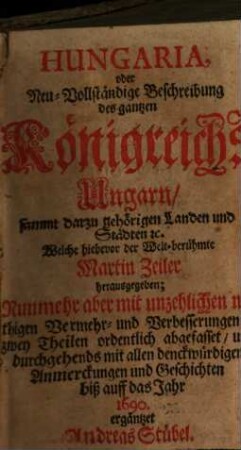 HUNGARIA,
oder
Neu-Vollständige Beschreibung
des gantzen
Königreichs
Ungarn/
sammt darzu gehörigen Landen und
Städten ꝛc.
Welche hiebevor der Welt-berühmte
Martin Zeiler
herausgegeben;
Nunmehr aber mit unzehlichen n
thigen Vermehr- und Verbesserungen
zwey Theilen ordentlich abgefasset/ u
durchgehends mit allen denckwürdigen
Anmerckungen und Geschichten
biß auff das Jahr
1690.
ergäntzet
Andreas Stübel.